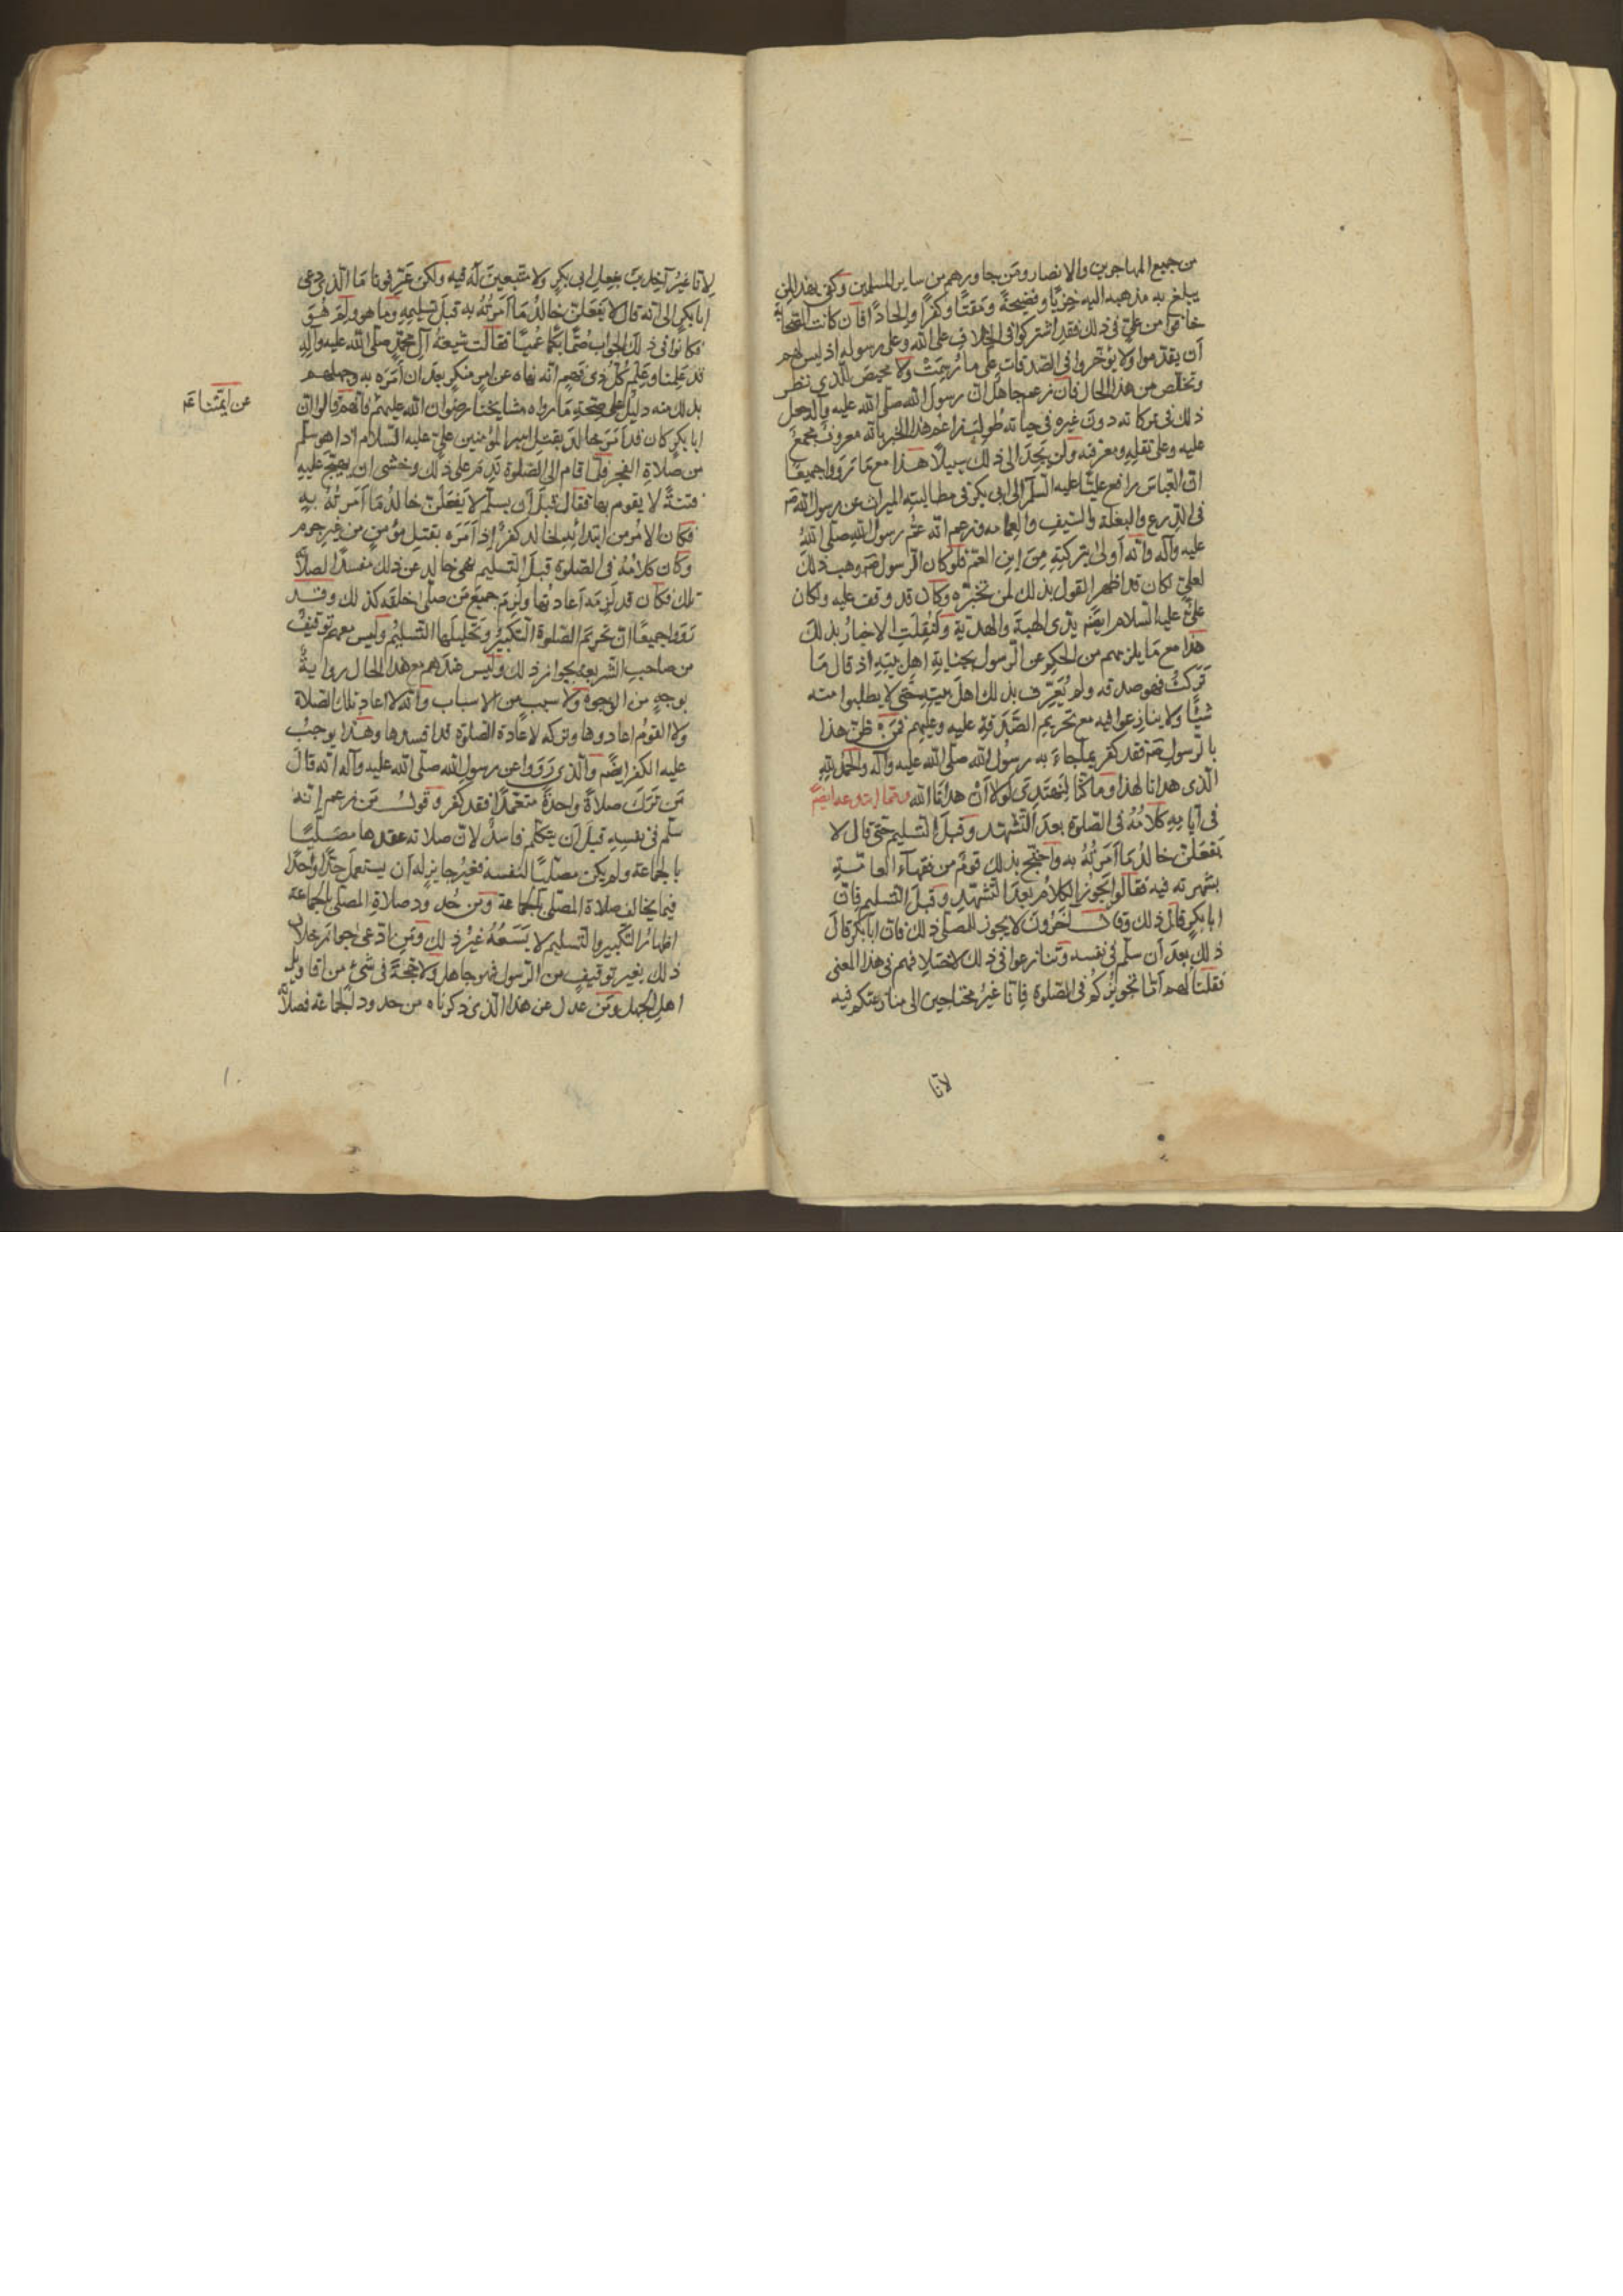 من جميع المهاجرين والانصار ومن جاورهم من ساير المسلمين وكفى بهذا لمن
يبلغ به مذهبه اليه خزيًا وفضيحةً ومقتًا وكفرًا والحادًا فان كانت الصحابة
خافوا من علي في ذلك فقد اشتركوا في الخلاف على الله وعلى رسوله اذ ليس لهم
ان يقدموا ولا يؤخروا في الصدقات على ما رُجمت ولا محيص للذي نظر
وتخلص من هذا الحال فان زعم جاهل ان رسول الله صلى الله عليه وآله جعل
ذلك في تركاته دون غيره في حياته طولب زاعم هذا الخبر بانه معروف مجمع
عليه وعلى نقله ومعرفته ولن يجد الى ذلك سبيلا هذا مع ما رووا جميعًا
ان العباس رافع عليًّا عليه السلم الى ابي بكر في مطالبته الميراث عن رسول الله صم
في الدرع والبغلة والسيف والعمامه وزعم انه عم رسول الله صلى الله
عليه وآله وانه اولى بتركته من ابن العم فلو كان الرسول صم وهب ذلك
لعلي لكان قد اظهر القول بذلك لمن تخبره وكان قد وقف عليه ولكان
علي عليه السلام ايضًم يدعى الهبة والهدية ولنقلت الاخبار بذلك
هذا مع ما يلزمهم من الحكم عن الرسول بجناية اهل بيته اذ قال ما
تركت فهو صدقه ولم يُعرّف بذلك اهل بيته حتى لا يطلبوا منه
شيًّا ولا ينازعوا فيه مع تحريم الصدقة عليه وعليهم فمن ظن هذا
بالرسول صم فقد كفر بما جاء به رسول الله صلى الله عليه وآله والحمد لله
الذي هدانا لهذا وما كنا لنهتدى لولا ان هدانا الله ومما ابتدعه ايضًم
في ايامه كلامُه في الصلوة بعد التشهد وقبل التسليم حتى قال لا
يفعلن خالدٌ ما امرتُه به واحتج بذلك قوم من فقهآء العامّة
بشهرته فيه فقالوا يجوز الكلام بعد التشهد وقبل التسليم فان
ابا بكر قال ذلك وقال آخرون لا يجوز للمصلي ذلك فان ابا بكر قال
ذلك بعد ان سلم في نفسه وتنازعوا في ذلك لاختلافهم في هذا المعنى
فقلنا لهم اما تجويزكم في الصلوة فانا غير محتاجين الى منازعتكم فيه
لانا
لانا غيرُ آخذين بفعل ابى بكرٍ ولا متبعين له فيه ولكن عرّفونا ما الذى دعى
ابا بكر الى انه قال لا يفعلن خالدٌ ما امرتُه به قبل تسليمه وما هو ولم هو
فكانوا في ذلك الجواب صُمًّا بكمًا عُميًا فقالت شيعة آل محمد صلى الله عليه وآله
قد علمنا وعلم كُلّ ذى فهم انه نهاه عن امر منكر بعد ان امره به وجهلهم
بذلك منه دليل على صحة ما رواه مشايخنا رضوان الله عليهم فانهم قالوا ان
عن ايمّتنا عم
ابا بكر كان قد امر خالد بقتل امير المؤمنين علي عليه السلام اذا هو سلم
من صلاة الفجر فلما قام الى الصلوة ندم على ذلك وخشى ان يهيج عليه
فتنةً لا يقوم بها فقال قبل ان يسلم لا يفعلن خالد ما امرتُه به
فكان الامر من ابتدايه لخالد كفرًا اذ امره بقتل مؤمن من غير جرم
وكان كلامُه في الصلوة قبل التسليم نهى خالد عن ذلك مفسدًا لصلاة
تلك فكان قد لزمه اعادتها ولزم جميع من صلى خلفه كذلك وقد
رووا جميعًا ان تحريم الصلوة التكبير وتحليلها التسليم وليس معهم توقيف
من صاحب الشريعه بجواز ذلك وليس عندهم مع هذا الحال رواية
بوجهٍ من الوجوه ولا سبب من الاسباب وانه لا اعاد تلك الصلاة
ولا القوم اعادوها وتركه لاعادة الصلوة قد افسدها وهذا يوجب
عليه الكفر ايضًم والذى رووا عن رسول الله صلى الله عليه وآله انه قال
من ترك صلاةً واحدةً متعمدًا فقد كفر وقول من زعم انه
سلم في نفسه قبل ان يتكلم فاسدٌ لان صلاته عقدها مصليًا
بالجماعة ولم يكن مصليًا لنفسه فغير جايز له ان يستعمل حدًّا واحدًا
فيما يخالف صلاة المصلى بالجماعة ومن حُدود صلاة المصلى بالجماعة
اظهار التكبير والتسليم لا يَسَعُهُ غيرُ ذلك ومن ادّعى جواز خلاف
ذلك بغير توقيف من الرسول فهو جاهل ولا حجة في شئ من اقاويل
اهل الجهل ومن عدل عن هذا الذى ذكرناه من حدود الجماعة فصلاته
١٠